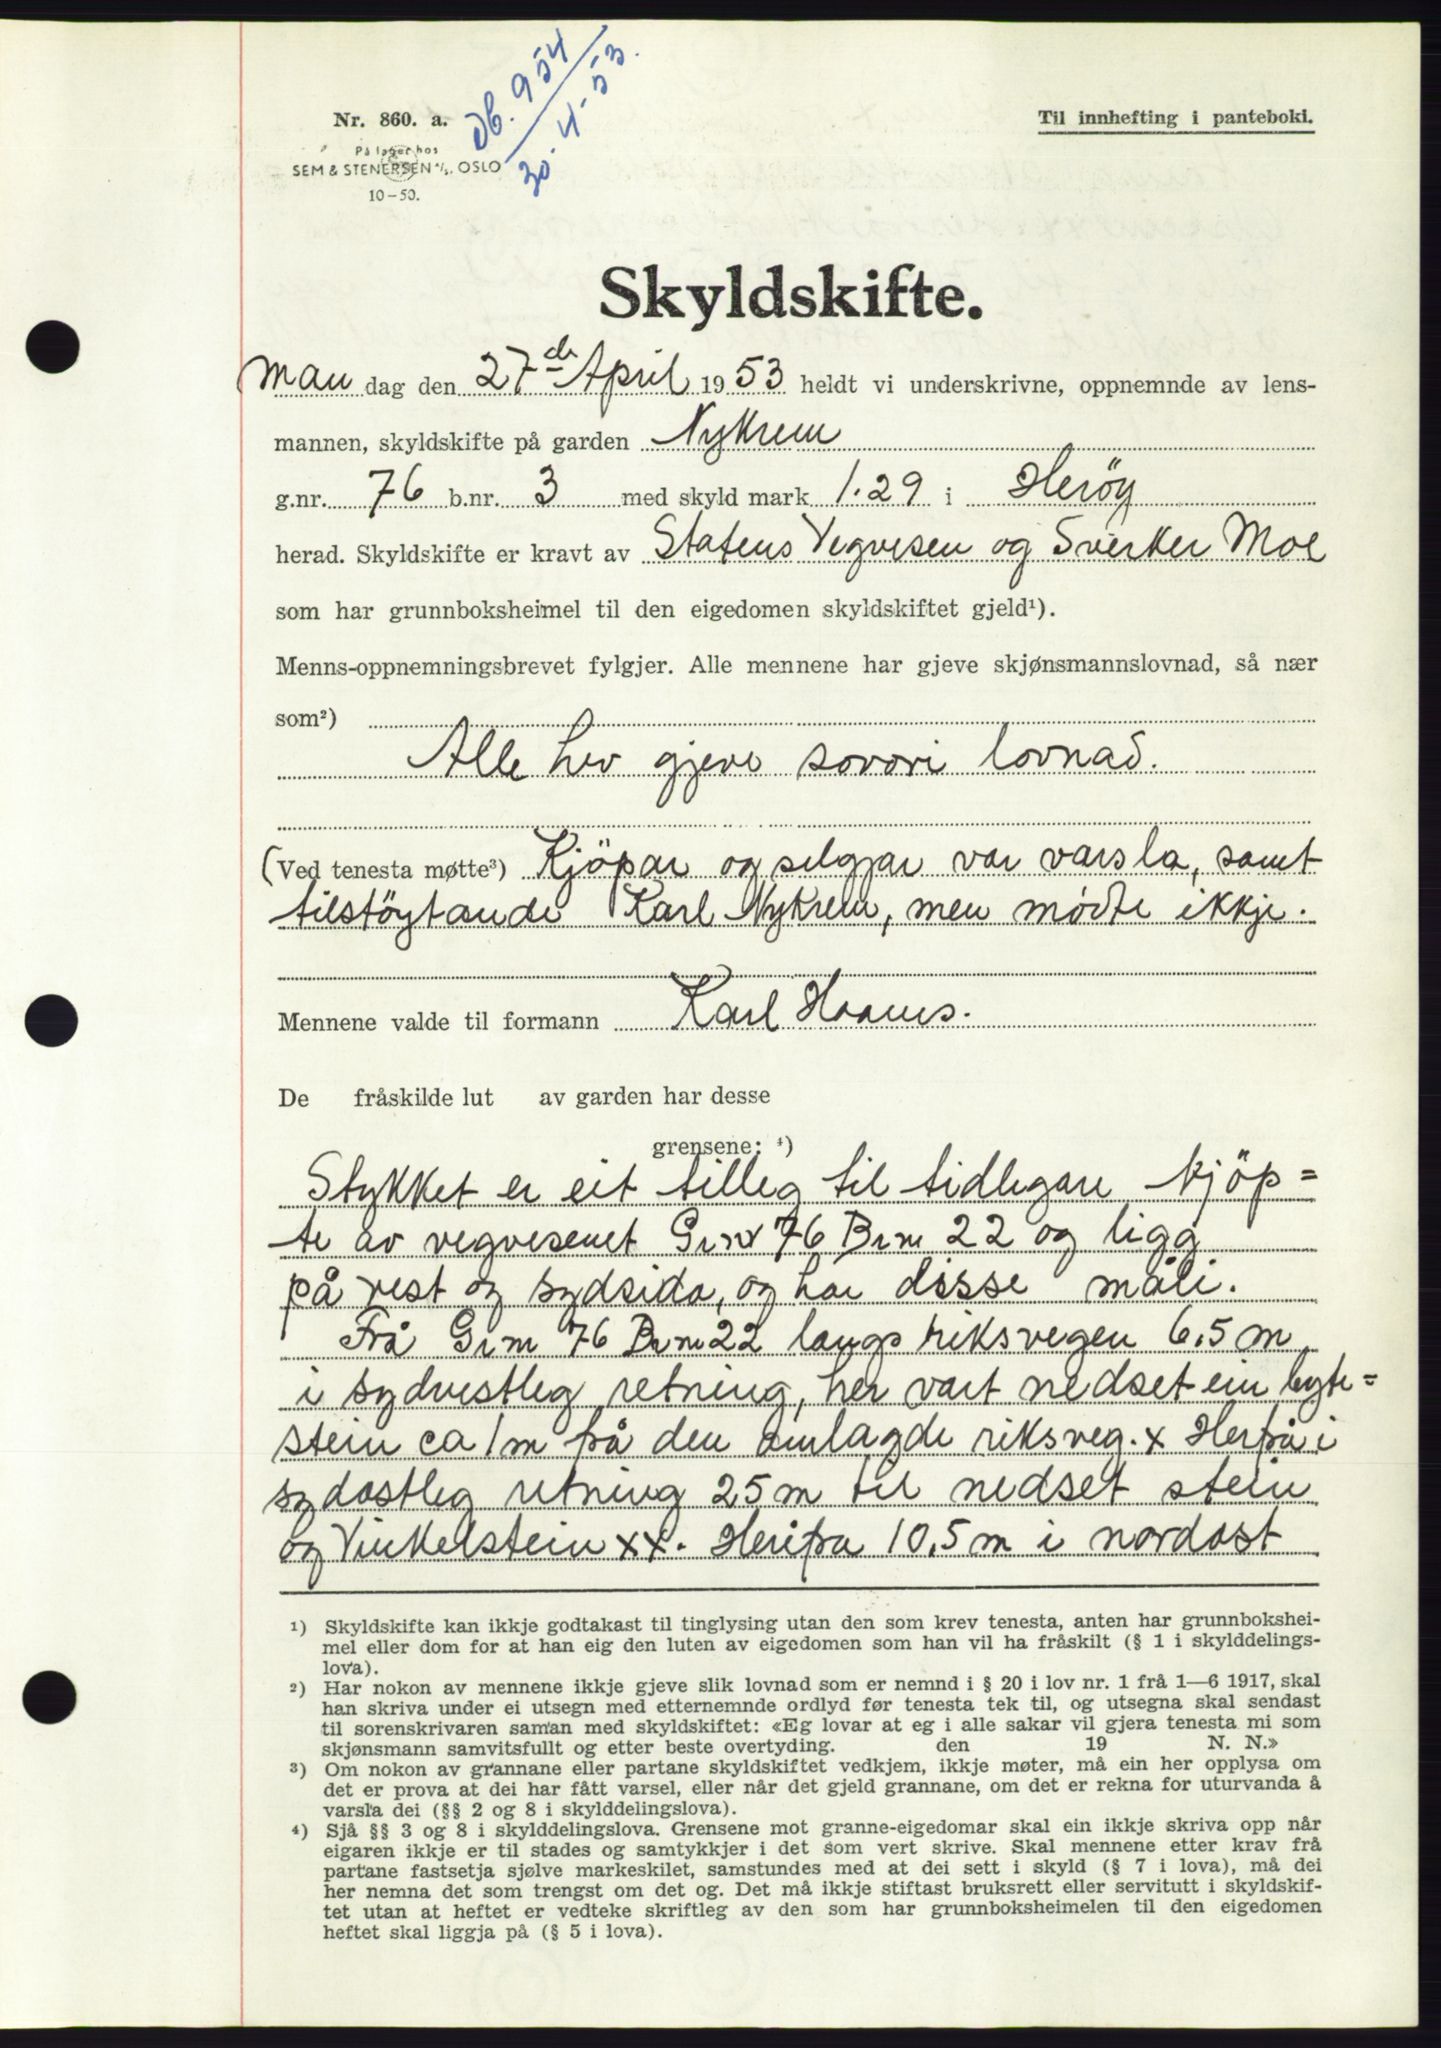 Db. 954
30.4-53.
Nr. 860. a.
På lager hos
SEM & STENERSEN A/S, OSLO
10-50.
Til innhefting i panteboki.
Skyldskifte.
Man dag den 27de April 1953 heldt vi underskrivne, oppnemnde av lens-
mannen, skyldskifte på garden Nykrem
g.nr. 76 b.nr. 3 med skyld mark 1.29 i Herøy
herad. Skyldskifte er kravt av Statens Vegvesen og Sverker Moe
som har grunnboksheimel til den eigedomen skyldskiftet gjeld¹).
Menns-oppnemningsbrevet fylgjer. Alle mennene har gjeve skjønsmannslovnad, så nær
som²)
Alle hev gjeve sovori lovnad.
(Ved tenesta møtte³) Kjöpar og seljar var varsla, samt
tilstöytande Karl Nykrem, men mødte ikkje.
Mennene valde til formann Karl
De fråskilde lut av garden har desse
grensene: ⁴)
Stykket er eit tilleg til tidlegare kjöp=
te av vegvesenet Grnr 76 Brnr 22 og ligg
på vest og sydsida, og har disse måli.
Frå Grnr 76 Brnr 22 langs riksvegen 6,5 m
i sydvestleg retning, her vart nedset ein byte=
stein ca 1 m frå den omlagde riksveg. x Herfrå i
sydostleg retning 25 m til nedset stein
og Vinkelstein xx. Herifra 10,5 m i nordost
¹) Skyldskifte kan ikkje godtakast til tinglysing utan den som krev tenesta, anten har grunnbokshei-
mel eller dom for at han eig den luten av eigedomen som han vil ha fråskilt (§ 1 i skylddelings-
lova).
²) Har nokon av mennene ikkje gjeve slik lovnad som er nemnd i § 20 i lov nr. 1 frå 1—6 1917, skal
han skriva under ei utsegn med etternemnde ordlyd før tenesta tek til, og utsegna skal sendast
til sorenskrivaren saman med skyldskiftet: «Eg lovar at eg i alle sakar vil gjera tenesta mi som
skjønsmann samvitsfullt og etter beste overtyding. den 19 N. N.»
³) Om nokon av grannane eller partane skyldskiftet vedkjem, ikkje møter, må ein her opplysa om
det er prova at dei har fått varsel, eller når det gjeld grannane, om det er rekna for uturvanda å
varsla dei (§§ 2 og 8 i skylddelingslova).
⁴) Sjå §§ 3 og 8 i skylddelingslova. Grensene mot granne-eigedomar skal ein ikkje skriva opp når
eigaren ikkje er til stades og samtykkjer i det som vert skrive. Skal mennene etter krav frå
partane fastsetja sjølve markeskilet, samstundes med at dei sett i skyld (§ 7 i lova), må dei
her nemna det som trengst om det og. Det må ikkje stiftast bruksrett eller servitutt i skyldskif-
tet utan at heftet er vedteke skriftleg av den som har grunnboksheimelen til den eigedomen
heftet skal liggja på (§ 5 i lova).